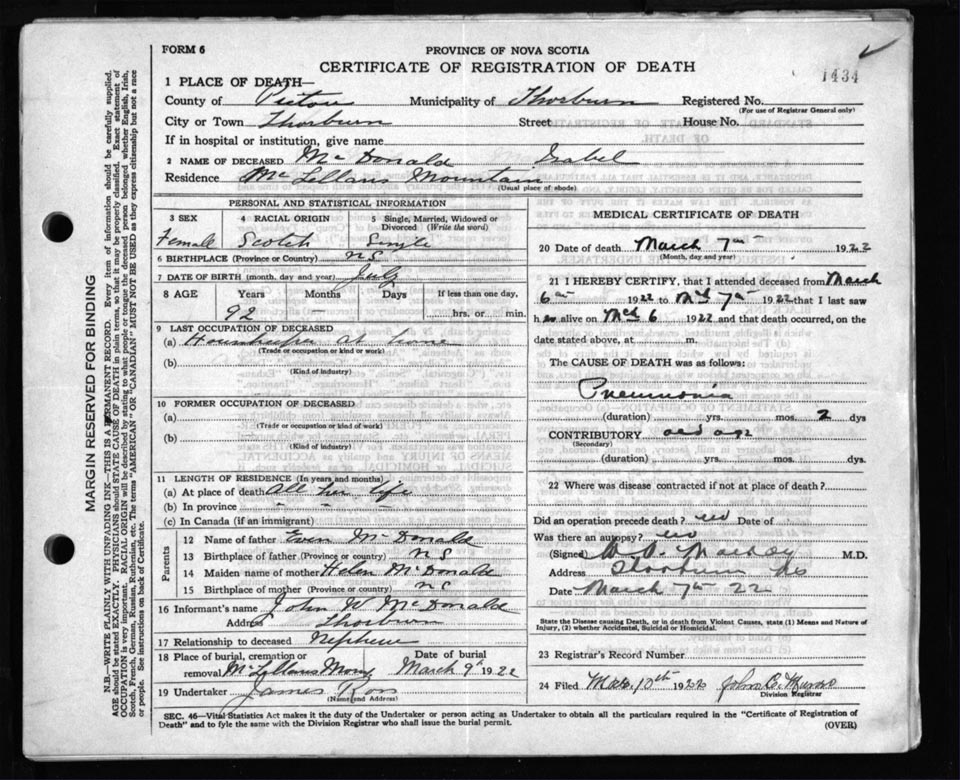 FORM 6
PROVINCE OF NOVA SCOTIA
CERTIFICATE OF REGISTRATION OF DEATH
1434
1 PLACE OF DEATH—
County of Pictou Municipality of Thorburn Registered No.
(For use of Registrar General only)
City or Town Thorburn Street House No.
If in hospital or institution, give name
2 NAME OF DECEASED McDonald Isabel
Residence McLellans Mountain
(Usual place of abode)
PERSONAL AND STATISTICAL INFORMATION
3 SEX 4 RACIAL ORIGIN 5 Single, Married, Widowed or Divorced (Write the word)
Female Scotch Single
6 BIRTHPLACE (Province or Country) NS
7 DATE OF BIRTH (month, day and year) July
8 AGE Years Months Days If less than one day,
92 — hrs. or min.
9 LAST OCCUPATION OF DECEASED
(a) Housekeeper at home
(Trade or occupation or kind or work)
(b)
(Kind of industry)
10 FORMER OCCUPATION OF DECEASED
(a)
(Trade or occupation or kind of work)
(b)
(Kind of industry)
11 LENGTH OF RESIDENCE (In years and months)
(a) At place of death All her life
(b) In province " " "
(c) In Canada (if an immigrant)
Parents
12 Name of father Even McDonald
13 Birthplace of father (Province or country) NS
14 Maiden name of mother Helen McDonald
15 Birthplace of mother (Province or country) NS
16 Informant's name John W McDonald
Address Thorburn
17 Relationship to deceased Nephew
18 Place of burial, cremation or removal McLellans Mount Date of burial March 9th 1922
19 Undertaker James Ross
(Name and Address)
MEDICAL CERTIFICATE OF DEATH
20 Date of death March 7th 1922
(Month, day and year)
21 I HEREBY CERTIFY, that I attended deceased from March
6th 1922 to Mch 7th 1922 that I last saw
her alive on Mch 6 1922 and that death occurred, on the
date stated above, at m.
The CAUSE OF DEATH was as follows:
Pneumonia
(duration) yrs. mos. 2 dys
CONTRIBUTORY old age
(Secondary)
(duration) yrs. mos. dys.
22 Where was disease contracted if not at place of death?
Did an operation precede death? no Date of
Was there an autopsy? no
(Signed) MacKay M.D.
Address Thorburn NS
Date March 7th 22
State the Disease causing Death, or in death from Violent Causes, state (1) Means and Nature of
Injury, (2) whether Accidental, Suicidal or Homicidal.
23 Registrar's Record Number
24 Filed Mar 10th 1922 John C. Munro
Division Registrar
SEC. 46—Vital Statistics Act makes it the duty of the Undertaker or person acting as Undertaker to obtain all the particulars required in the "Certificate of Registration of
Death" and to fyle the same with the Division Registrar who shall issue the burial permit. (OVER)
MARGIN RESERVED FOR BINDING
N.B.—WRITE PLAINLY WITH UNFADING INK—THIS IS A PERMANENT RECORD. Every item of information should be carefully supplied.
AGE should be stated EXACTLY. PHYSICIANS should STATE CAUSE OF DEATH in plain terms, so that it may be properly classified. Exact statement of
OCCUPATION is very important. RACIAL ORIGIN will be described by stating to what people or tongue the deceased person belonged whether English, Irish,
Scotch, French, German, Russian, Ruthenian, etc. The terms "AMERICAN" OR "CANADIAN" MUST NOT BE USED as they express citizenship but not a race
or people. See instructions on back of Certificate.